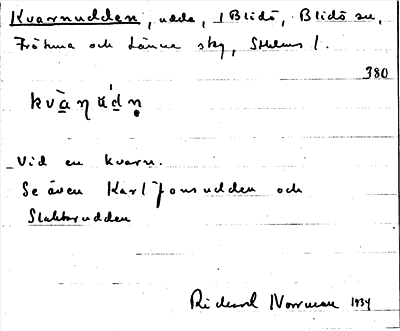 Kvarnudden, udde, 1 Blidö, Blidö sn,
Fröt una och Länna sky, Sthlms l.
380
kvàɳɯ́dɳ
Vid en kvarn.
Se även Karl Jonsudden och
Slakbarudden
Richard Norrman 1934